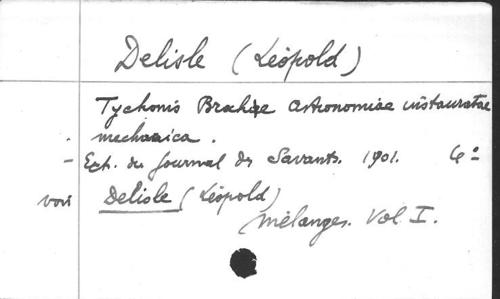 Delisle (Léopold)
Tychonis Brahae Astronomiae instauratae
mechanica.
- Ext. du Journal des Savants. 1901. 4º
voir Delisle (Léopold)
Mélanges. Vol. I.